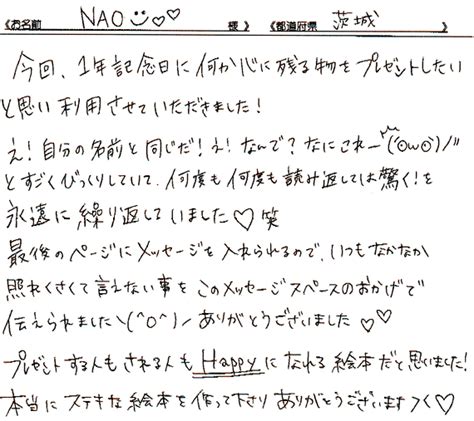 《お名前 NAO☺♡♡ 様》 《都道府県 茨城 》
今回、1年記念日に何か心に残る物をプレゼントしたい
と思い利用させていただきました！
え！自分の名前と同じだ！え！なんで？なにこれー"(´ºωº`)ﾉ"
とすごくびっくりしていて、何度も何度も読み返しては驚く！を
永遠に繰り返していました♡笑
最後のページにメッセージを入れられるので、いつもなかなか
照れくさくて言えない事をこのメッセージスペースのおかげで
伝えられました＼(^o^)／ありがとうございました♡♡
プレゼントする人もされる人もHappyになれる絵本だと思いました！
本当にステキな絵本を作って下さりありがとうございます＞＜♡